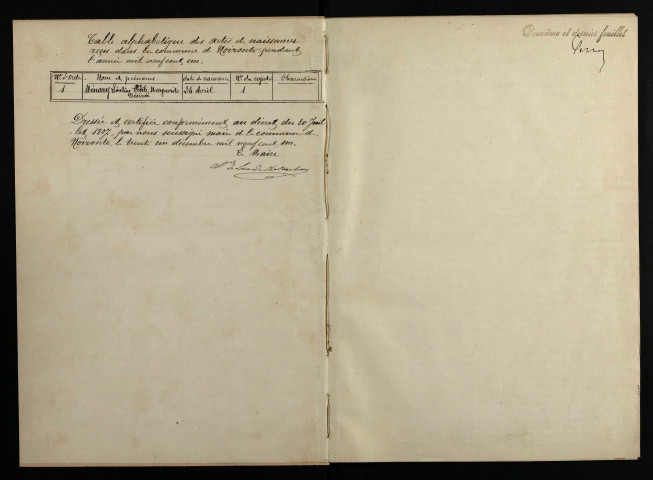 Table alphabétique des actes de naissances
reçus dans la commune de Noironte pendant
l'année mil neuf cent un.
Nos d'ordre Nom et prénoms date de naissance Nos du registre Observations
1 Marguerite 24 Avril 1
Désirée
Dressée et certifiée conformément au décret du 20 juil
let 1807, par nous soussigné maire de la commune de
Noironte le trente un décembre mil neuf cent un.
Le Maire
Deuxième et dernier feuillet